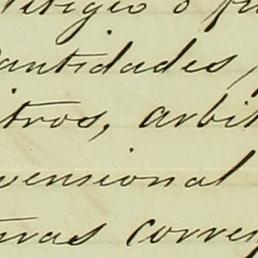 litigio o
cantidades,
itros, arbit
vensional
uras corres